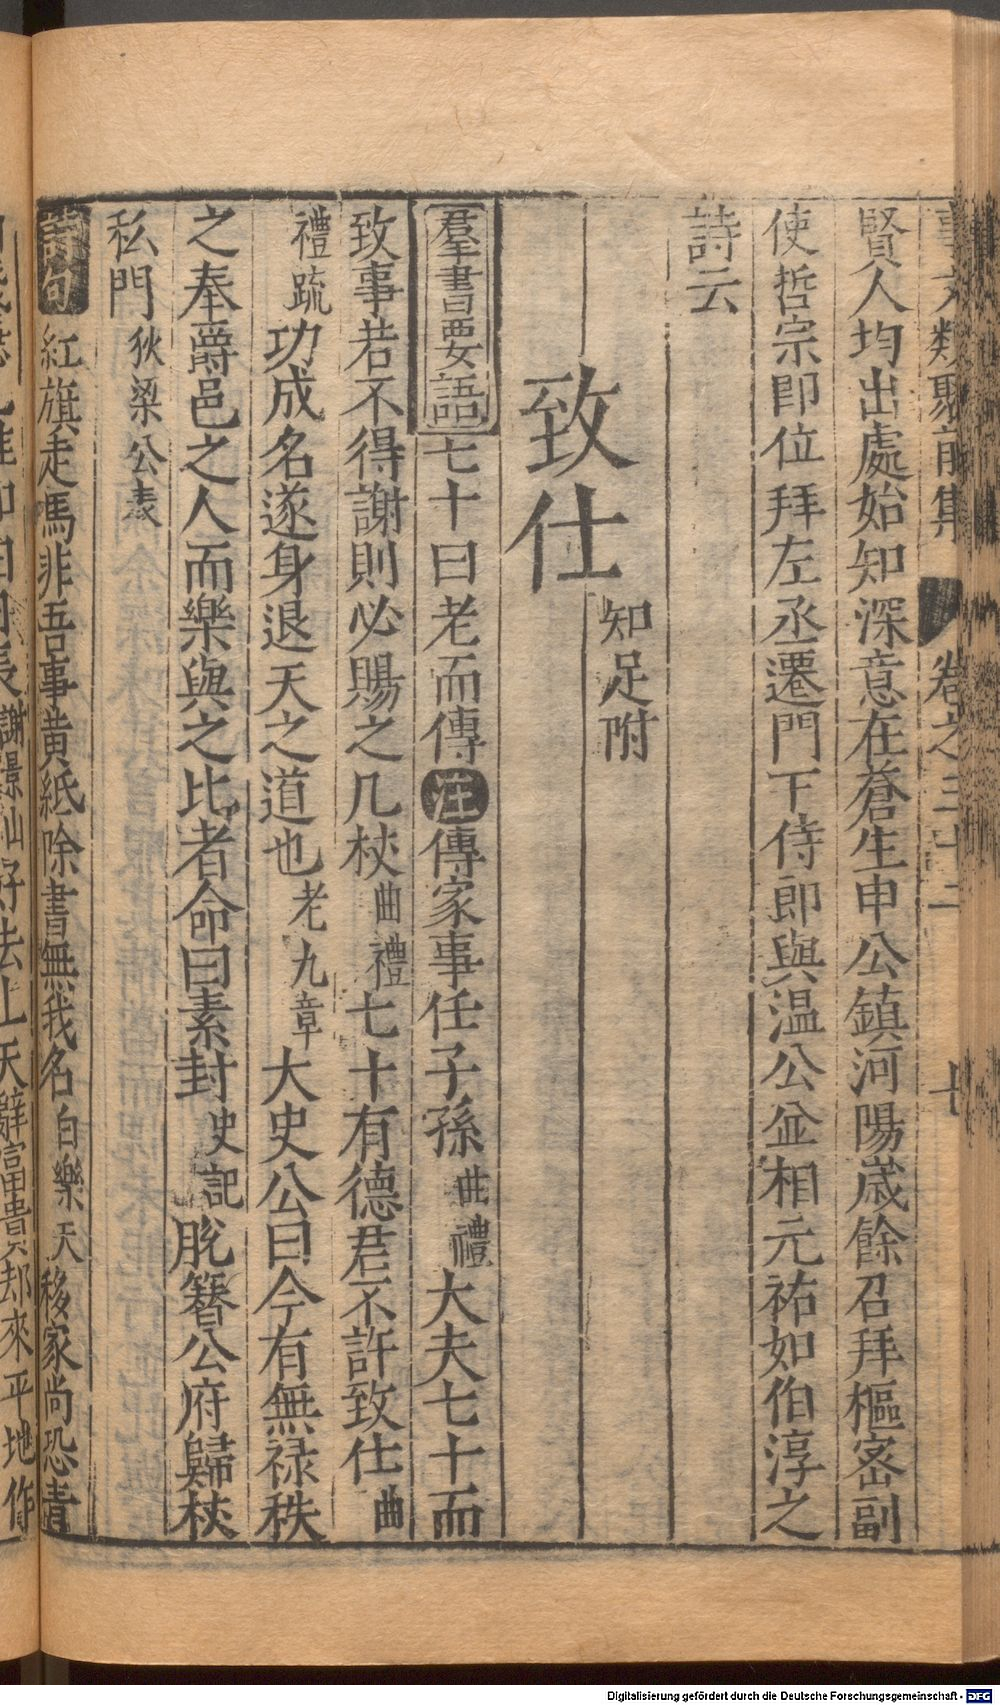 事文類聚前集 卷之三十二 十
賢人均出處始知深意在蒼生申公鎮河陽歲餘召拜樞宻副
使哲宗即位拜左丞遷門下侍郎與温公並相元祐如伯淳之
詩云
致仕 知足附
羣書要語 七十曰老而傳 注 傳家事任子孫 曲禮 大夫七十而
致事若不得謝則必賜之几杖 曲禮 七十有德君不許致仕 曲
禮疏 功成名遂身退天之道也 老九章 大史公曰今有無禄秩
之奉爵邑之人而樂與之比者命曰素封 史記 脫簪公府歸杖
私門 狄梁公表
詩句 紅旗走馬非吾事黄紙除書無我名 白樂天 移家尚恐青
謝 好去上天辭富貴却來平地作
Digitalisierung gefördert durch die Deutsche Forschungsgemeinschaft - DFG